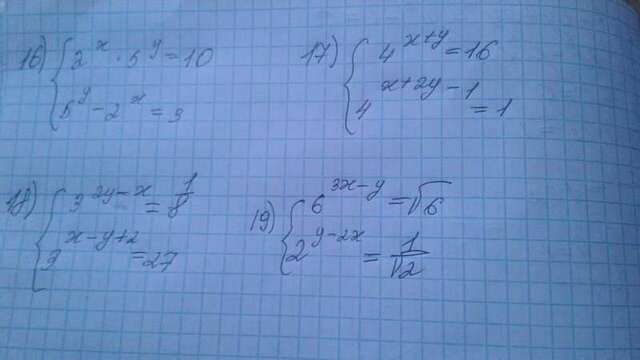 16) { 2^x · 5^y = 10
5^y - 2^x = 3
17) { 4^{x+y} = 16
4^{x+2y-1} = 1
18) { 3^{2y-x} = 1/8
3^{x-y+2} = 27
19) { 6^{3x-y} = √6
2^{y-2x} = 1/√2